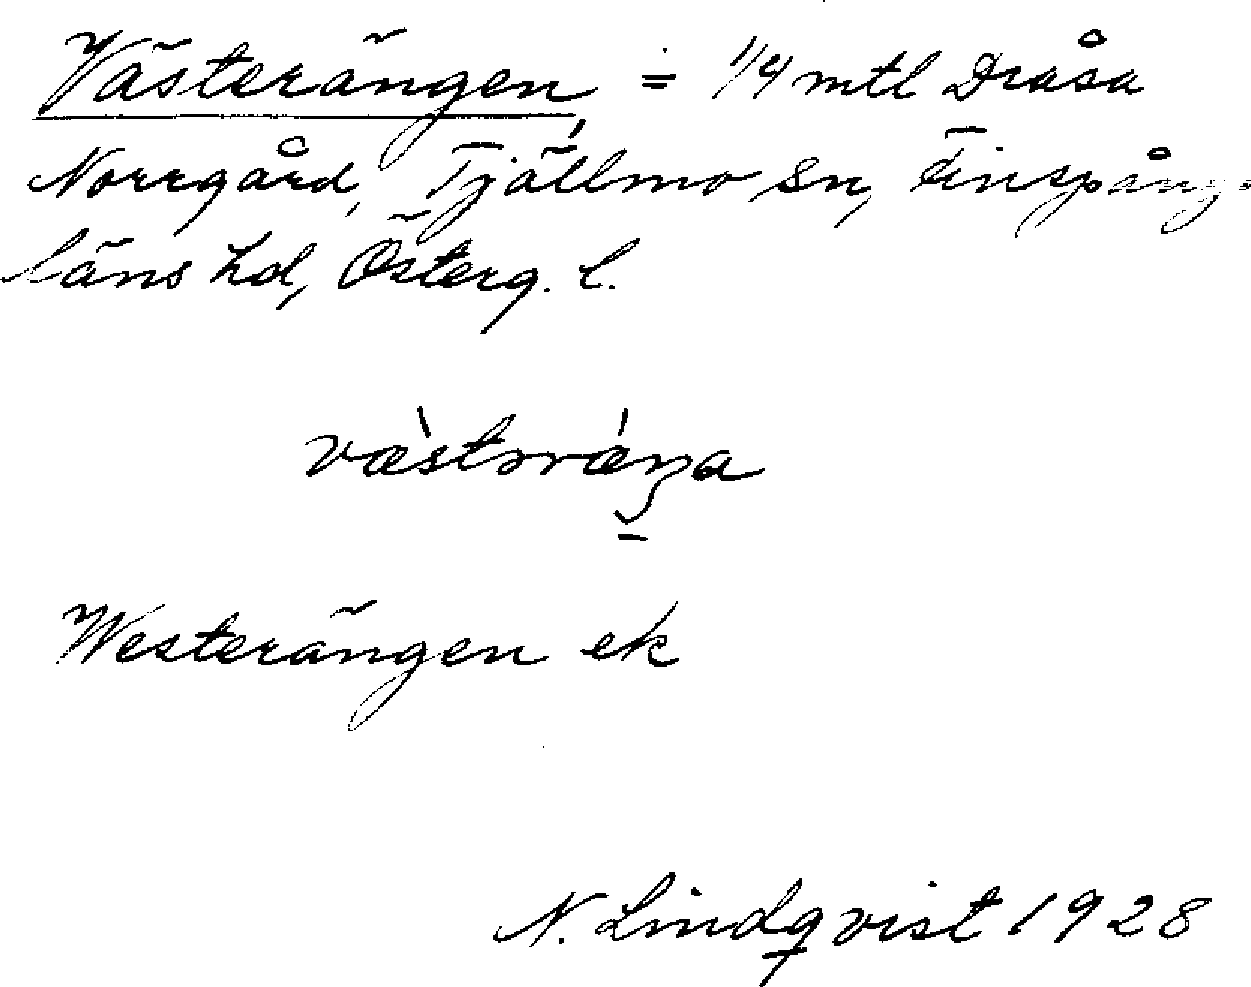 Västerängen = 1/4 mtl Dråsa
Norrgård, Tjällmo sn, Finspång-
läns hd, Österg. l.
væ̀stərǽŋa
Westerängen ek
N. Lindqvist 1928